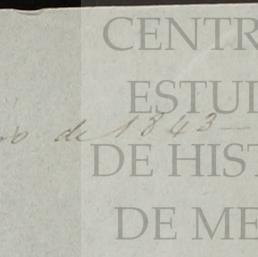 CENTR
ESTUD
o de 1843
DE HIST
DE ME